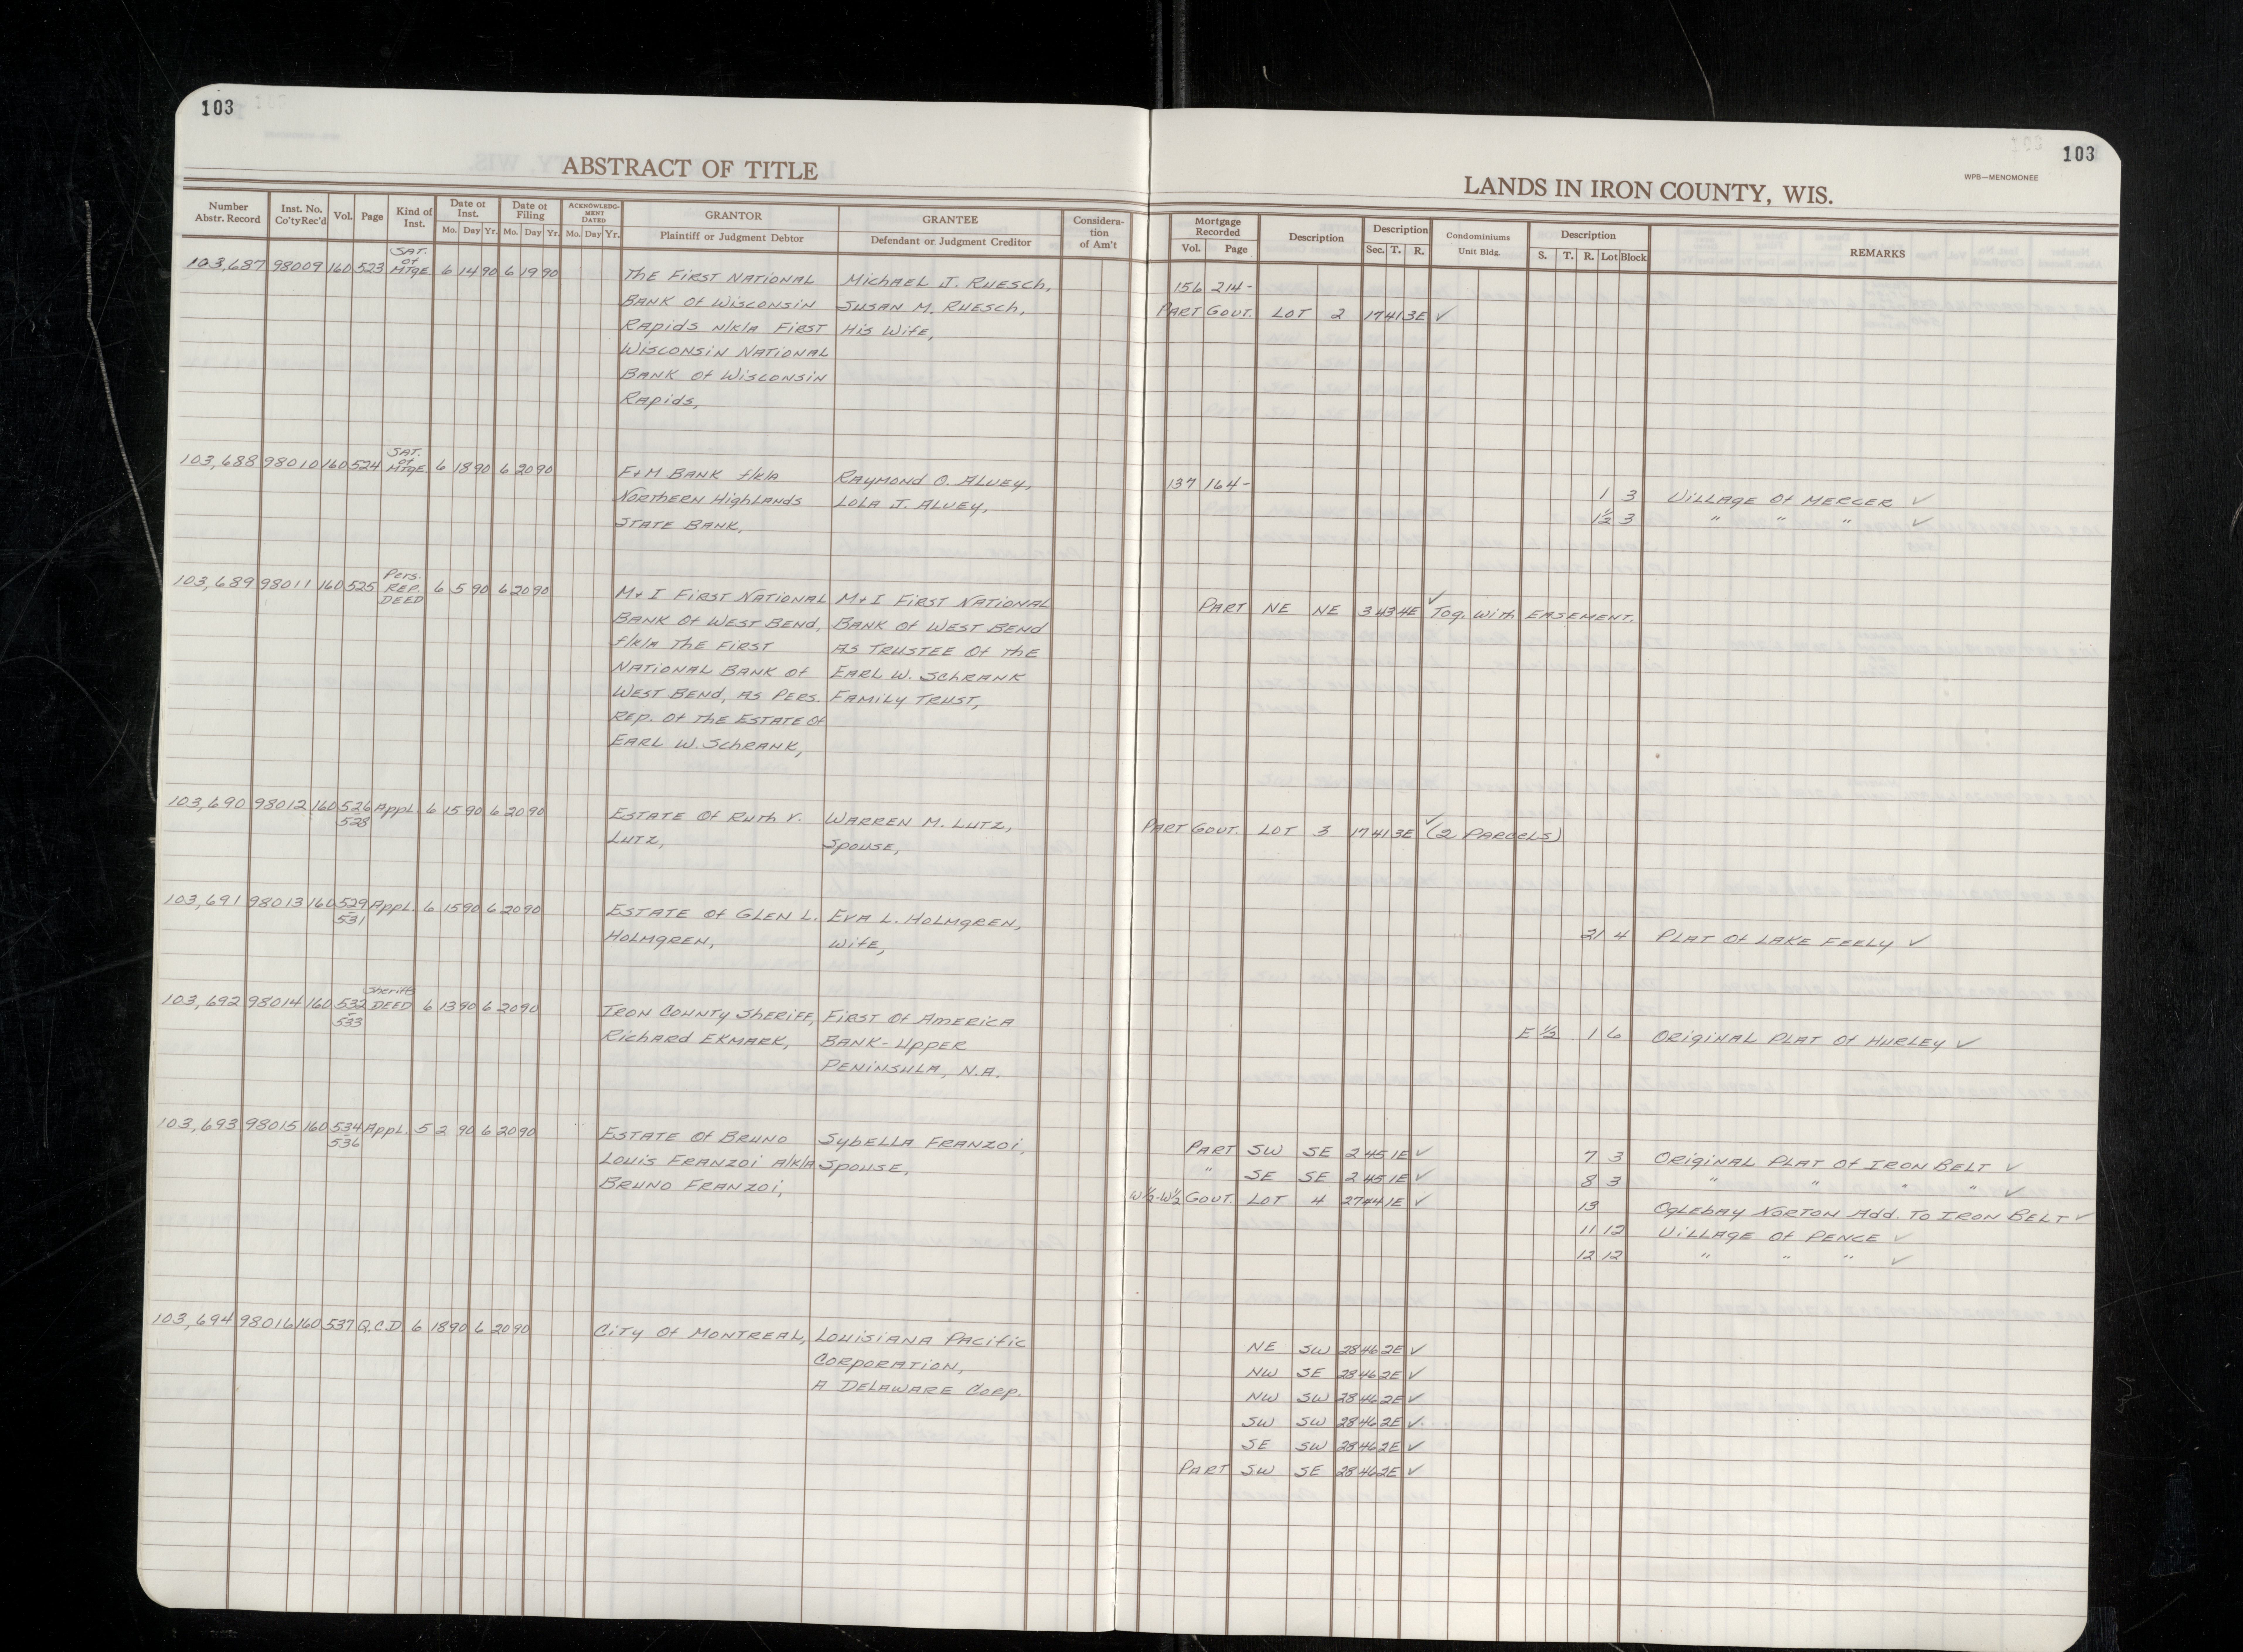 103
103
ABSTRACT OF TITLE
LANDS IN IRON COUNTY, WIS.
WPB—MENOMONEE
Number Abstr. Record | Inst. No. Co'ty Rec'd | Vol. | Page | Kind of Inst. | Date of Inst. Mo. Day Yr. | Date of Filing Mo. Day Yr. | ACKNOWLEDGMENT DATED Mo. Day Yr. | GRANTOR Plaintiff or Judgment Debtor | GRANTEE Defendant or Judgment Creditor | Consideration of Am't | Mortgage Recorded Vol. Page | Description | Description Sec. T. R. | Condominiums Unit Bldg. | Description S. T. R. Lot Block | REMARKS
103,687 98009 160 523 SAT. of MTGE 6 14 90 6 19 90 The First National Michael J. Ruesch, 156 214-
Bank of Wisconsin Susan M. Ruesch, Part Gout. Lot 2 17 41 3E ✓
Rapids n/k/a First His Wife,
Wisconsin National
Bank of Wisconsin
Rapids,
103,688 98010 160 524 SAT. of MTGE 6 18 90 6 20 90 F+M Bank f/k/a Raymond O. Aluey, 137 164- 1 3 Village of Mercer ✓
Northern Highlands Lola J. Aluey, 1½ 3 " " " ✓
State Bank,
103,689 98011 160 525 Pers. Rep. Deed 6 5 90 6 20 90 M+I First National M+I First National Part NE NE 3 43 4E ✓ Tog. with Easement.
Bank of West Bend, Bank of West Bend
f/k/a The First as Trustee of the
National Bank of Earl W. Schrank
West Bend, as Pers. Family Trust,
Rep. of the Estate of
Earl W. Schrank,
103,690 98012 160 526-528 Appl. 6 15 90 6 20 90 Estate of Ruth V. Warren M. Lutz, Part Gout. Lot 3 17 41 3E ✓ (2 Parcels)
Lutz, Spouse,
103,691 98013 160 529-531 Appl. 6 15 90 6 20 90 Estate of Glen L. Eva L. Holmgren, 21 4 Plat of Lake Feely ✓
Holmgren, Wife,
103,692 98014 160 532-533 Sheriffs Deed 6 13 90 6 20 90 Iron County Sheriff, First of America E ½ 1 6 Original Plat of Hurley ✓
Richard Ekmark, Bank-Upper
Peninsula, N.A.
103,693 98015 160 534-536 Appl. 5 2 90 6 20 90 Estate of Bruno Sybella Franzoi, Part SW SE 2 45 1E ✓ 7 3 Original Plat of Iron Belt ✓
Louis Franzoi a/k/a Spouse, " SE SE 2 45 1E ✓ 8 3 " " " " ✓
Bruno Franzoi, W½-W½ Gout. Lot 4 27 44 1E ✓ 13 Oglebay Norton Add. To Iron Belt ✓
11 12 Village of Pence ✓
12 12 " " " ✓
103,694 98016 160 537 Q.C.D. 6 18 90 6 20 90 City of Montreal, Louisiana Pacific NE SW 28 46 2E ✓
Corporation, NW SE 28 46 2E ✓
A Delaware Corp. NW SW 28 46 2E ✓
SW SW 28 46 2E ✓
SE SW 28 46 2E ✓
Part SW SE 28 46 2E ✓